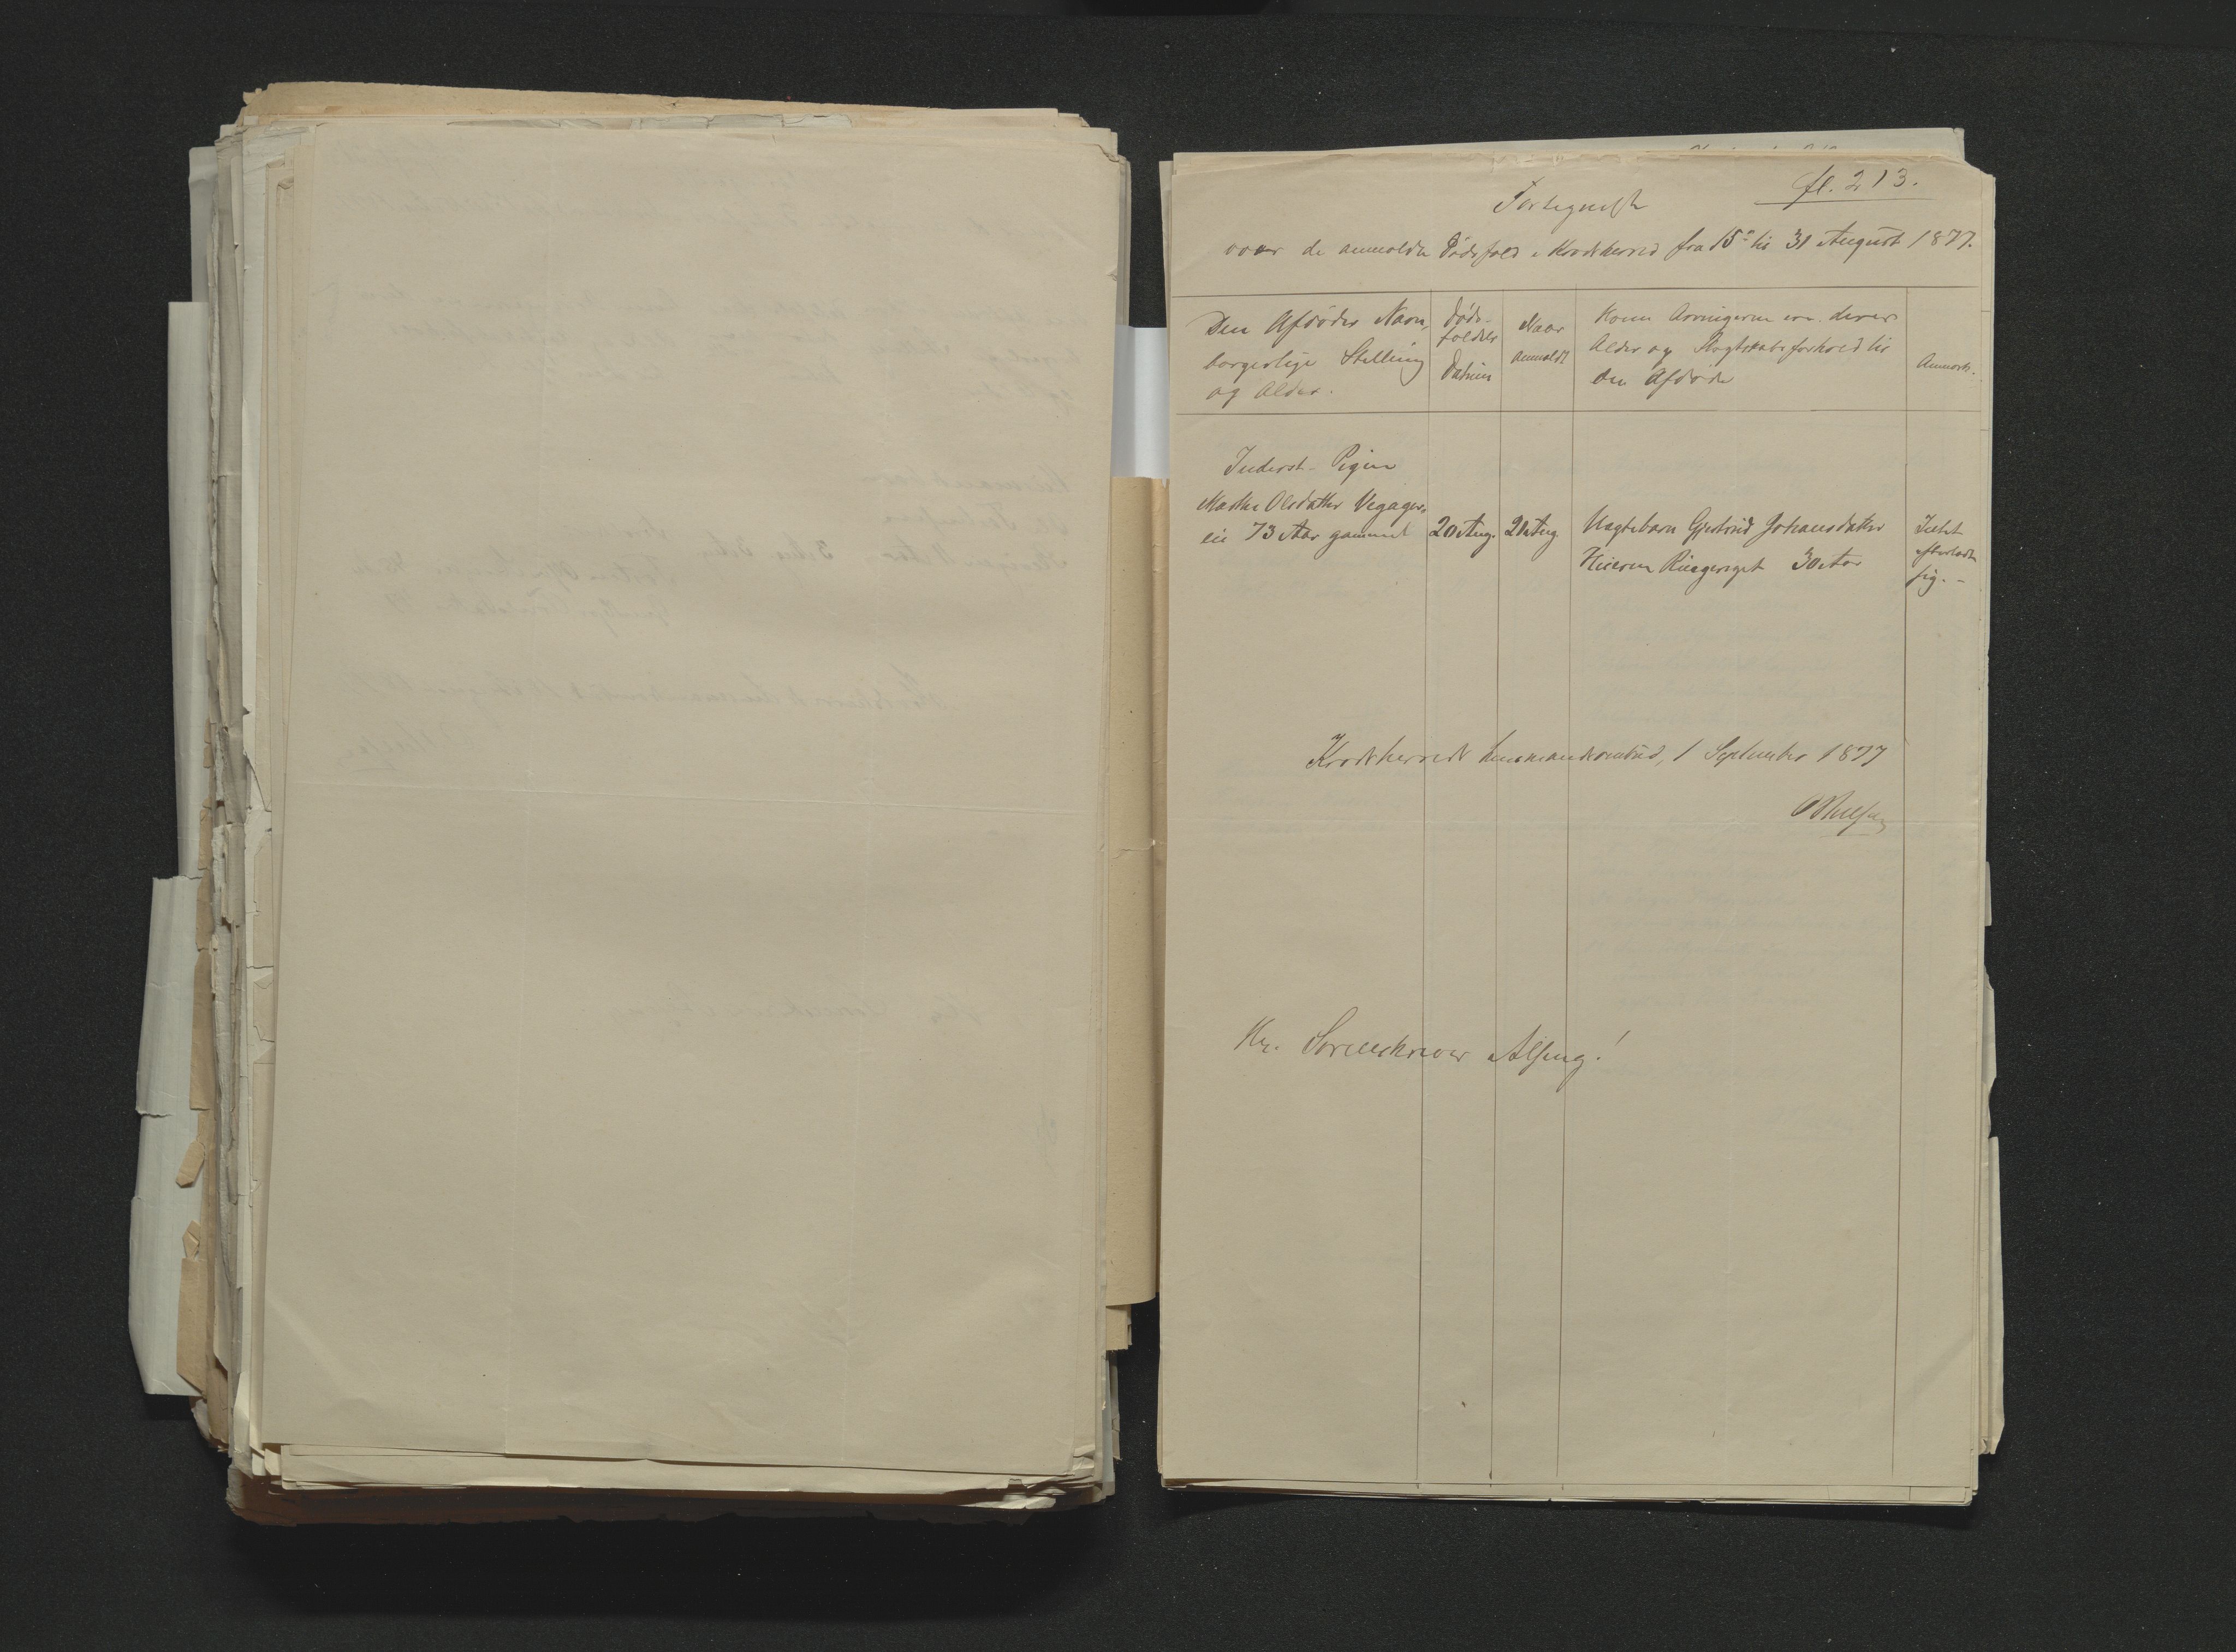 fl. 213.
Fortegnelse
over de anmeldte Dødsfald i Krødsherred fra 15de til 31 August 1877.
Den Afdødes Navn,
borgerlige Stilling
og Alder.
Døds-
faldets
Datum
Naar
anmeldt
Hvem Arvingerne ere. deres
Alder og Slægtskabsforhold til
den Afdøde
Anmærk.
Inderst-Pigen
Marthe Olsdatter Vegager-
eie 73 Aar gammel
20 Aug.
21 Aug
Uægtebarn Gjertrud Johansdatter
Ringeriget 30 Aar
Intet
efterladt
sig. -
Krødsherreds Lensmandsombud, 1 September 1877
Hr. Sorenskriver Alsing!